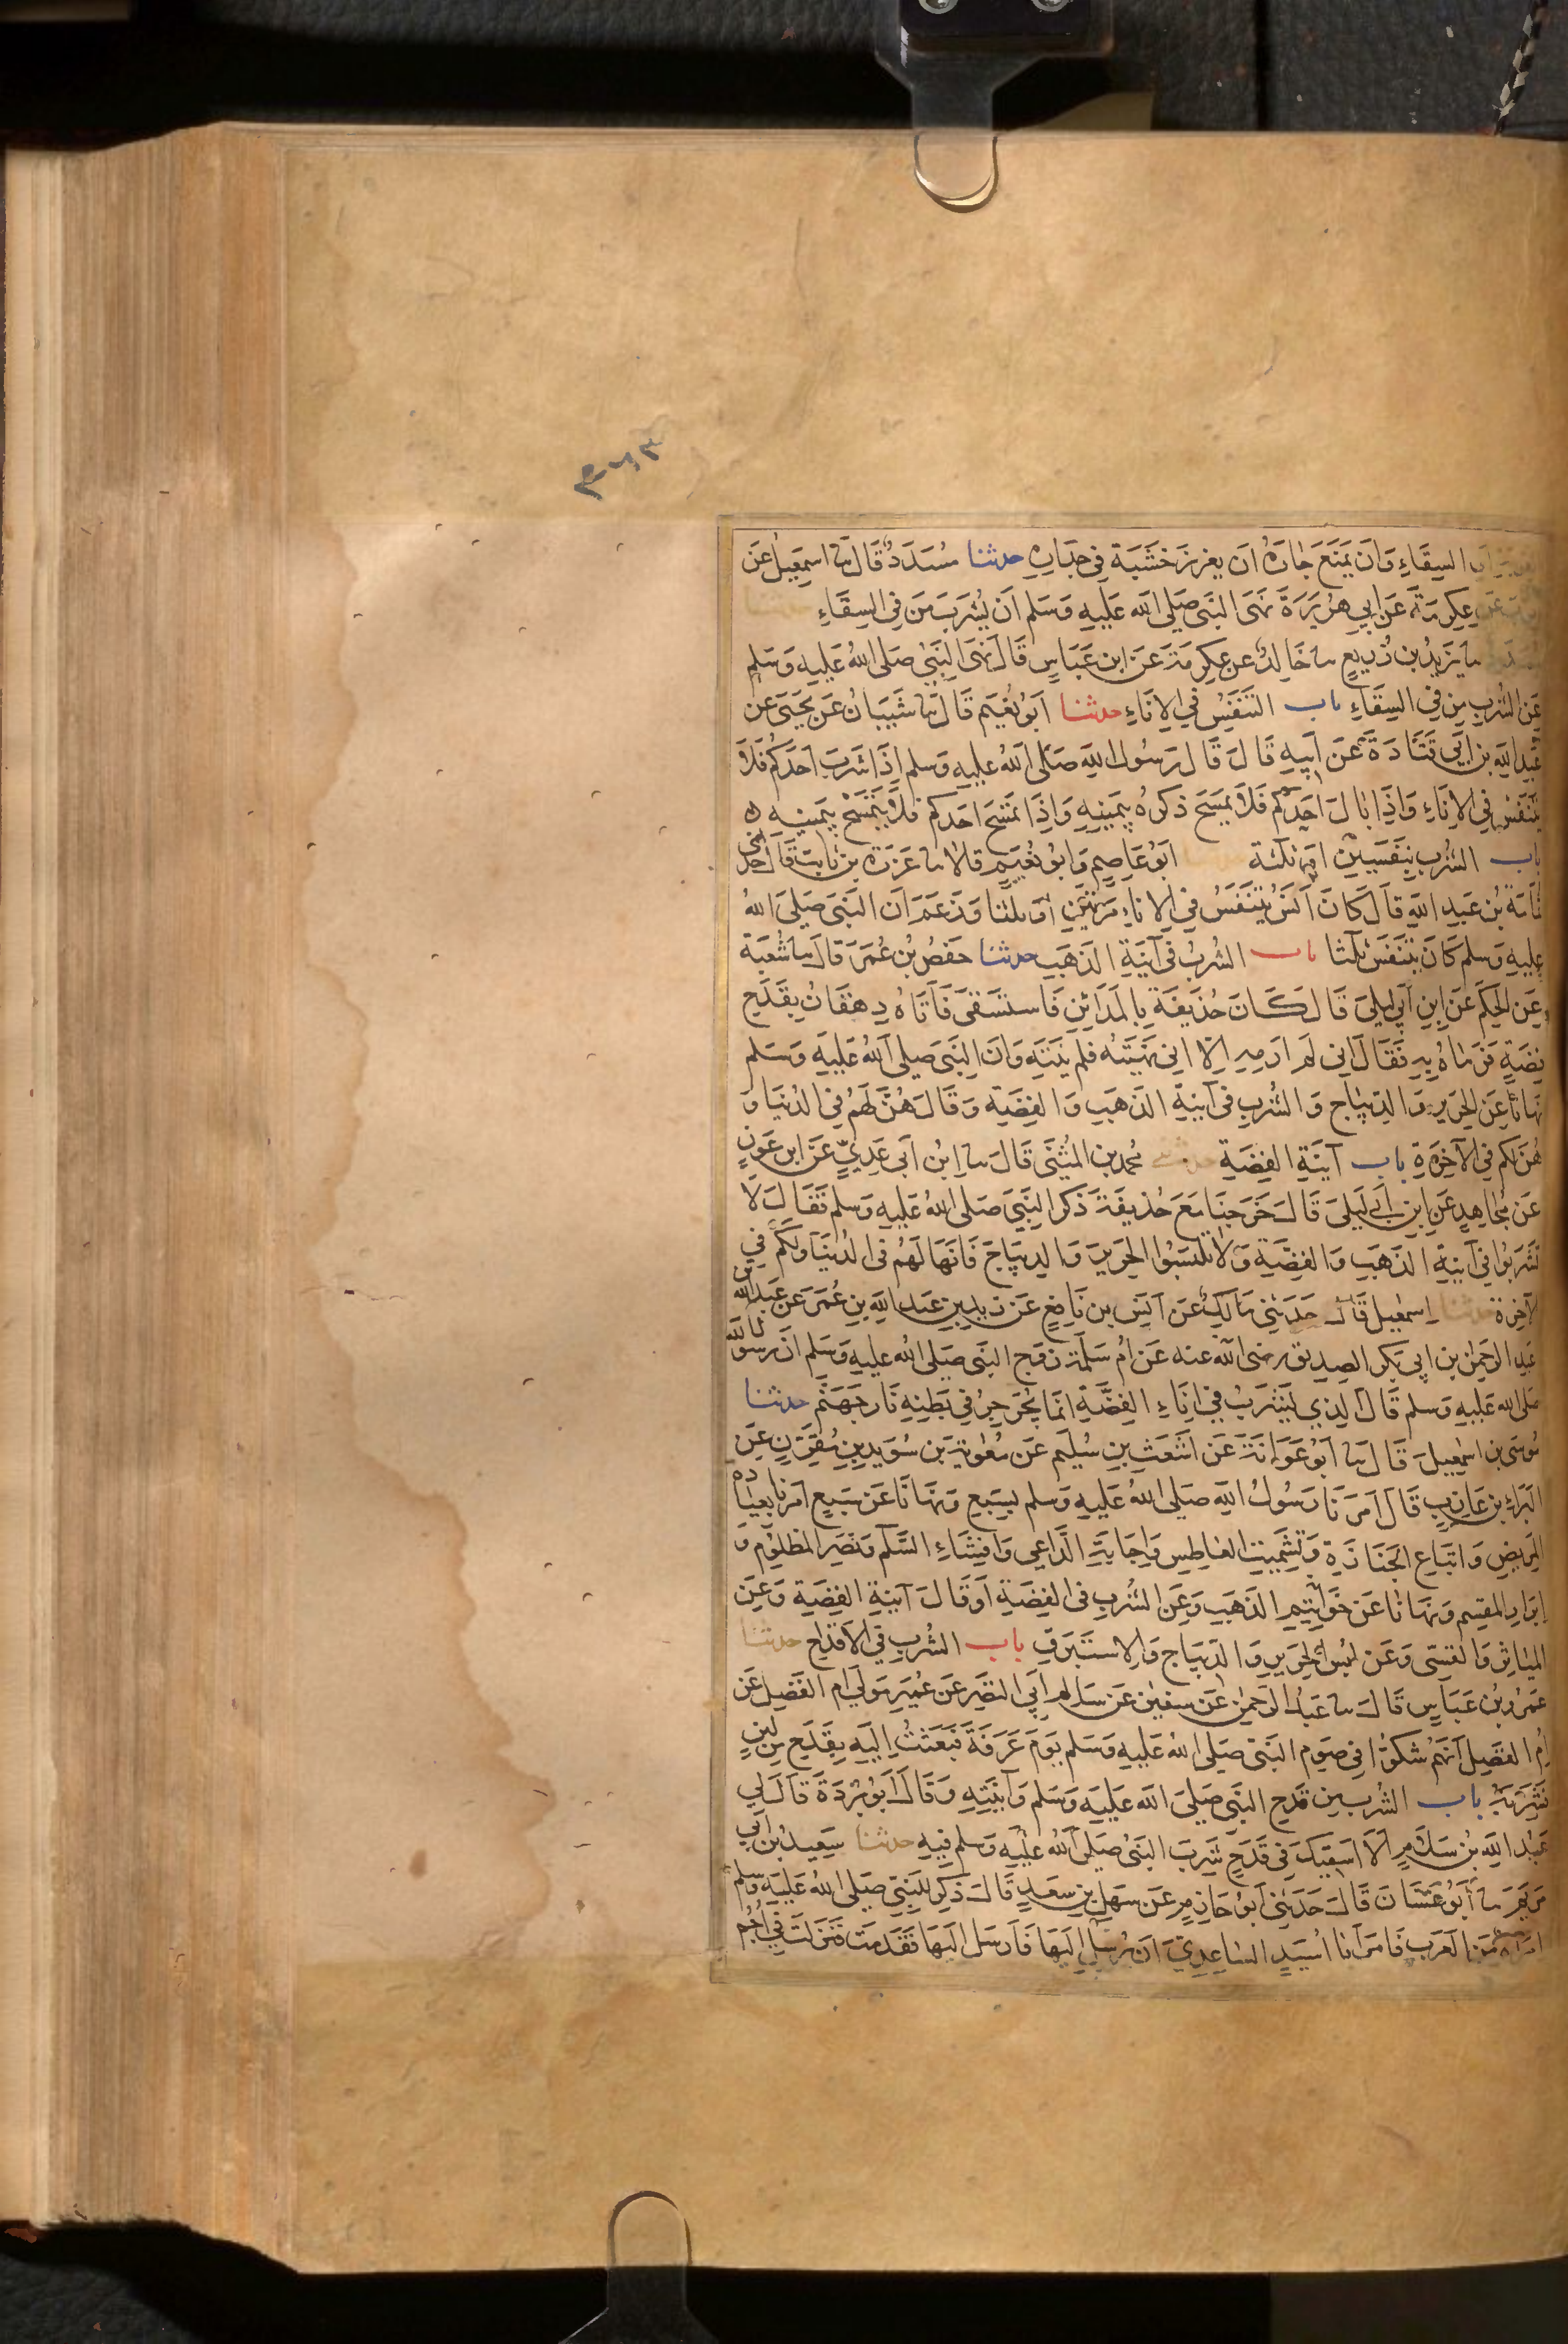 السِقَاءِ وَاَنْ يَمْنَعَ جَارَهُ اَنْ يَغْرِزَ خَشَبَةً فِى جِدَارِهِ حدثنا مُسَدَّدٌ قَالَ سا اسمعِيلُ عَن
عَن عِكرِمَةَ عَن اَبِى هُرَيرَةَ نَهَى النَبِى صَلى الله عَلَيهِ وَسَلم اَنْ يُشْرَبَ مِن فِى السِقَاءِ
سا يَزِيدُ بن زُرَيعٍ سا خَالِدٌ عن عِكرِمَةَ عَن ابن عَبَاسٍ قَالَ نَهَى النَبِىُ صَلى اللهُ عَلَيهِ وَسَلم
عَنِ الشُربِ مِن فِى السِقَاءِ باب التَنَفُسِ فِى الاِنَاءِ حدثنا اَبُو نُعَيمٍ قَالَ سا شَيبَانُ عَن يَحيَى عَن
عَبدِ اللهِ بن اَبِى قَتَادَةَ عَن اَبِيهِ قَالَ قَالَ رَسُولُ اللهِ صَلى اللهُ عَلَيهِ وَسلم اِذَا شَرِبَ اَحَدُكُم فَلاَ
يَتَنَفَس فِى الاِنَاءِ وَاِذَا بَالَ اَحَدُكُم فَلاَ يَمسَح ذَكَرَهُ بِيَمِينِهِ وَاِذَا تَمَسَحَ احَدكم فَلاَ يَتَمَسَح بِيَمِينِهِ ٥
باب الشُربِ بِنَفَسَينِ اَو ثَلثَة ابُو عَاصِمٍ وَابو نُعَيمٍ قالا سا عَزرَة بن ثَابِت قَالَ اَخبرنى
ثُمَامَةُ بنُ عَبدِ اللهِ قَالَ كَانَ اَنَسٌ يَتَنَفَسُ فِى الاِنَاءِ مَرَتَينِ اَو ثَلثًا وَزَعَمَ اَنَ النَبِىَ صَلى اللهُ
عَلَيهِ وَسلم كَانَ يَتَنَفَسُ ثَلثًا باب الشُربُ فِى آنِيَةِ الذَهَبِ حدثنا حَفصُ بنُ عُمَرَ قَالَ سا شُعبَة
عَنِ الحَكَمِ عَنِ ابنِ اَبِى لَيلَى قَالَ كَانَ حُذَيفَةُ بِالمَدَائِنِ فَاستَسقَى فَاَتَاهُ دِهقَانٌ بِقَدَحِ
فِضَةٍ فَرَمَاهُ بِهِ فَقَالَ اِنِى لَم اَرمِهِ اِلاَ اَنِى نَهَيتُه فَلَم يَنتَهِ وَاَنَ النَبِىَ صَلى اللهُ عَلَيهِ وَسَلم
نَهَانَا عَنِ الحَرِيرِ وَالدِيبَاجِ وَالشُربِ فِى آنِيَةِ الذَهَبِ وَالفِضَةِ وَقَالَ هُنَ لَهُم فِى الدُنيَا وَ
هُنَ لَكُم فِى الآخِرَةِ باب آنِيَةِ الفِضَةِ حدثنى مُحمدُ بن المُثَنَى قَالَ سا ابنُ اَبِى عَدِيٍ عَن ابن عَونٍ
عَن مُجَاهِدٍ عَنِ ابن اَبِى لَيلَى قَالَ خَرَجنَا مَعَ حُذَيفَةَ ذَكَرَ النَبِىَ صَلى اللهُ عَلَيهِ وَسلم فَقَالَ لاَ
تَشرَبُوا فِى آنِيَةِ الذَهَبِ وَالفِضَةِ وَلاَ تَلبَسُوا الحَرِيرَ وَالدِيبَاجَ فَاِنَهَا لَهُم فِى الدُنيَا وَلَكُم فِى
الآخِرَة حدثنا اِسمعِيل قَالَ حَدَثَنِى مَالِكٌ عَن اَنَسِ بن نَافِعٍ عَن زَيدِ بن عَبدِ اللهِ بنِ عُمَرَ عَن عَبد الله بن
عَبدِ الرَحمٰنِ بن اَبِى بَكر الصِديق رضى الله عنه عَن اُم سَلَمَة زَوج النَبِى صَلى الله عليه وَسَلم اَنَ رَسُولَ الله
صَلى الله عَلَيهِ وَسلم قَالَ الذِى يَشرَبُ فِى اِنَاءِ الفِضَةِ اِنَمَا يُجَرجِرُ فِى بَطنِهِ نَارَ جَهَنَم حدثنا
مُوسَى بن اسمعِيلَ قَالَ سا اَبُو عَوَانَةَ عَن اَشعَثَ بنِ سُلَيم عَن مُعوِيَةَ بن سُوَيدِ بنِ مُقَرِنٍ عَنِ
البَرَاءِ بن عَازِبٍ قَالَ اَمَرَنَا رَسُولُ اللهِ صَلى اللهُ عَلَيهِ وَسلم بِسَبعٍ وَنَهَانَا عَن سَبعٍ اَمَرَنا بعِيَادة
المَرِيضِ وَاتِبَاعِ الجَنَازَةِ وَتَشمِيتِ العَاطِسِ وَاِجَابَةِ الدَاعِى وَاِفشَاءِ السَلَم وَنَصرِ المَظلُومِ وَ
اِبرَارِ المُقسِمِ وَنَهَانَا عَن خَوَاتِيمِ الذَهَبِ وَعَنِ الشُربِ فِى الفِضَةِ اَو قَالَ آنِيَةِ الفِضَةِ وَعَنِ
المَيَاثِرِ وَالقَسِى وَعَن لُبسِ الحَرِيرِ وَالدِيبَاجِ وَالاِستَبرَقِ باب الشُربِ فِى الاَقدَاحِ حدثنا
عَمرُو بنُ عَبَاسٍ قَالَ سا عَبدُ الرَحمٰنِ عَن سفيٰن عَن سَالِم اَبِى النَضرِ عَن عُمَيرٍ مَولَى ام الفَضل عَن
اُم الفَضلِ اَنَهُم شَكُوا فِى صَومِ النَبِى صَلى اللهُ عَلَيهِ وَسَلم يَومَ عَرَفَةَ فَبَعَثتُ اِلَيهِ بِقَدَحٍ مِن لَبَنٍ
فَشَرِبَهُ باب الشُربِ مِن قَدَحِ النَبِى صَلى اللهُ عَلَيهِ وَسَلم وَآنِيَتِهِ وَقَالَ اَبُو بُردَةَ قَالَ لِى
عَبدُ اللهِ بنُ سَلاَمٍ اَلاَ اَسقِيكَ فِى قَدَحٍ شَرِبَ النَبِىُ صَلى اللهُ عَلَيهِ وَسلم فِيهِ حدثنا سَعِيدُ بن اَبِى
مَريَم سا اَبُو غَسَانَ قَالَ حَدَثَنِى اَبُو حَازِمٍ عَن سَهلِ بنِ سَعدٍ قَالَ ذُكِرَ لِلنَبِىِ صَلى اللهُ عَلَيهِ وَسلم
امرَاَة مِنَ العَرَبِ فَاَمَرَ اَبَا اُسَيدٍ السَاعِدِىَ اَن يُرسِلَ اِلَيهَا فَاَرسَلَ اِلَيهَا فَقَدِمَت فَنَزَلَت فِى اُجُم